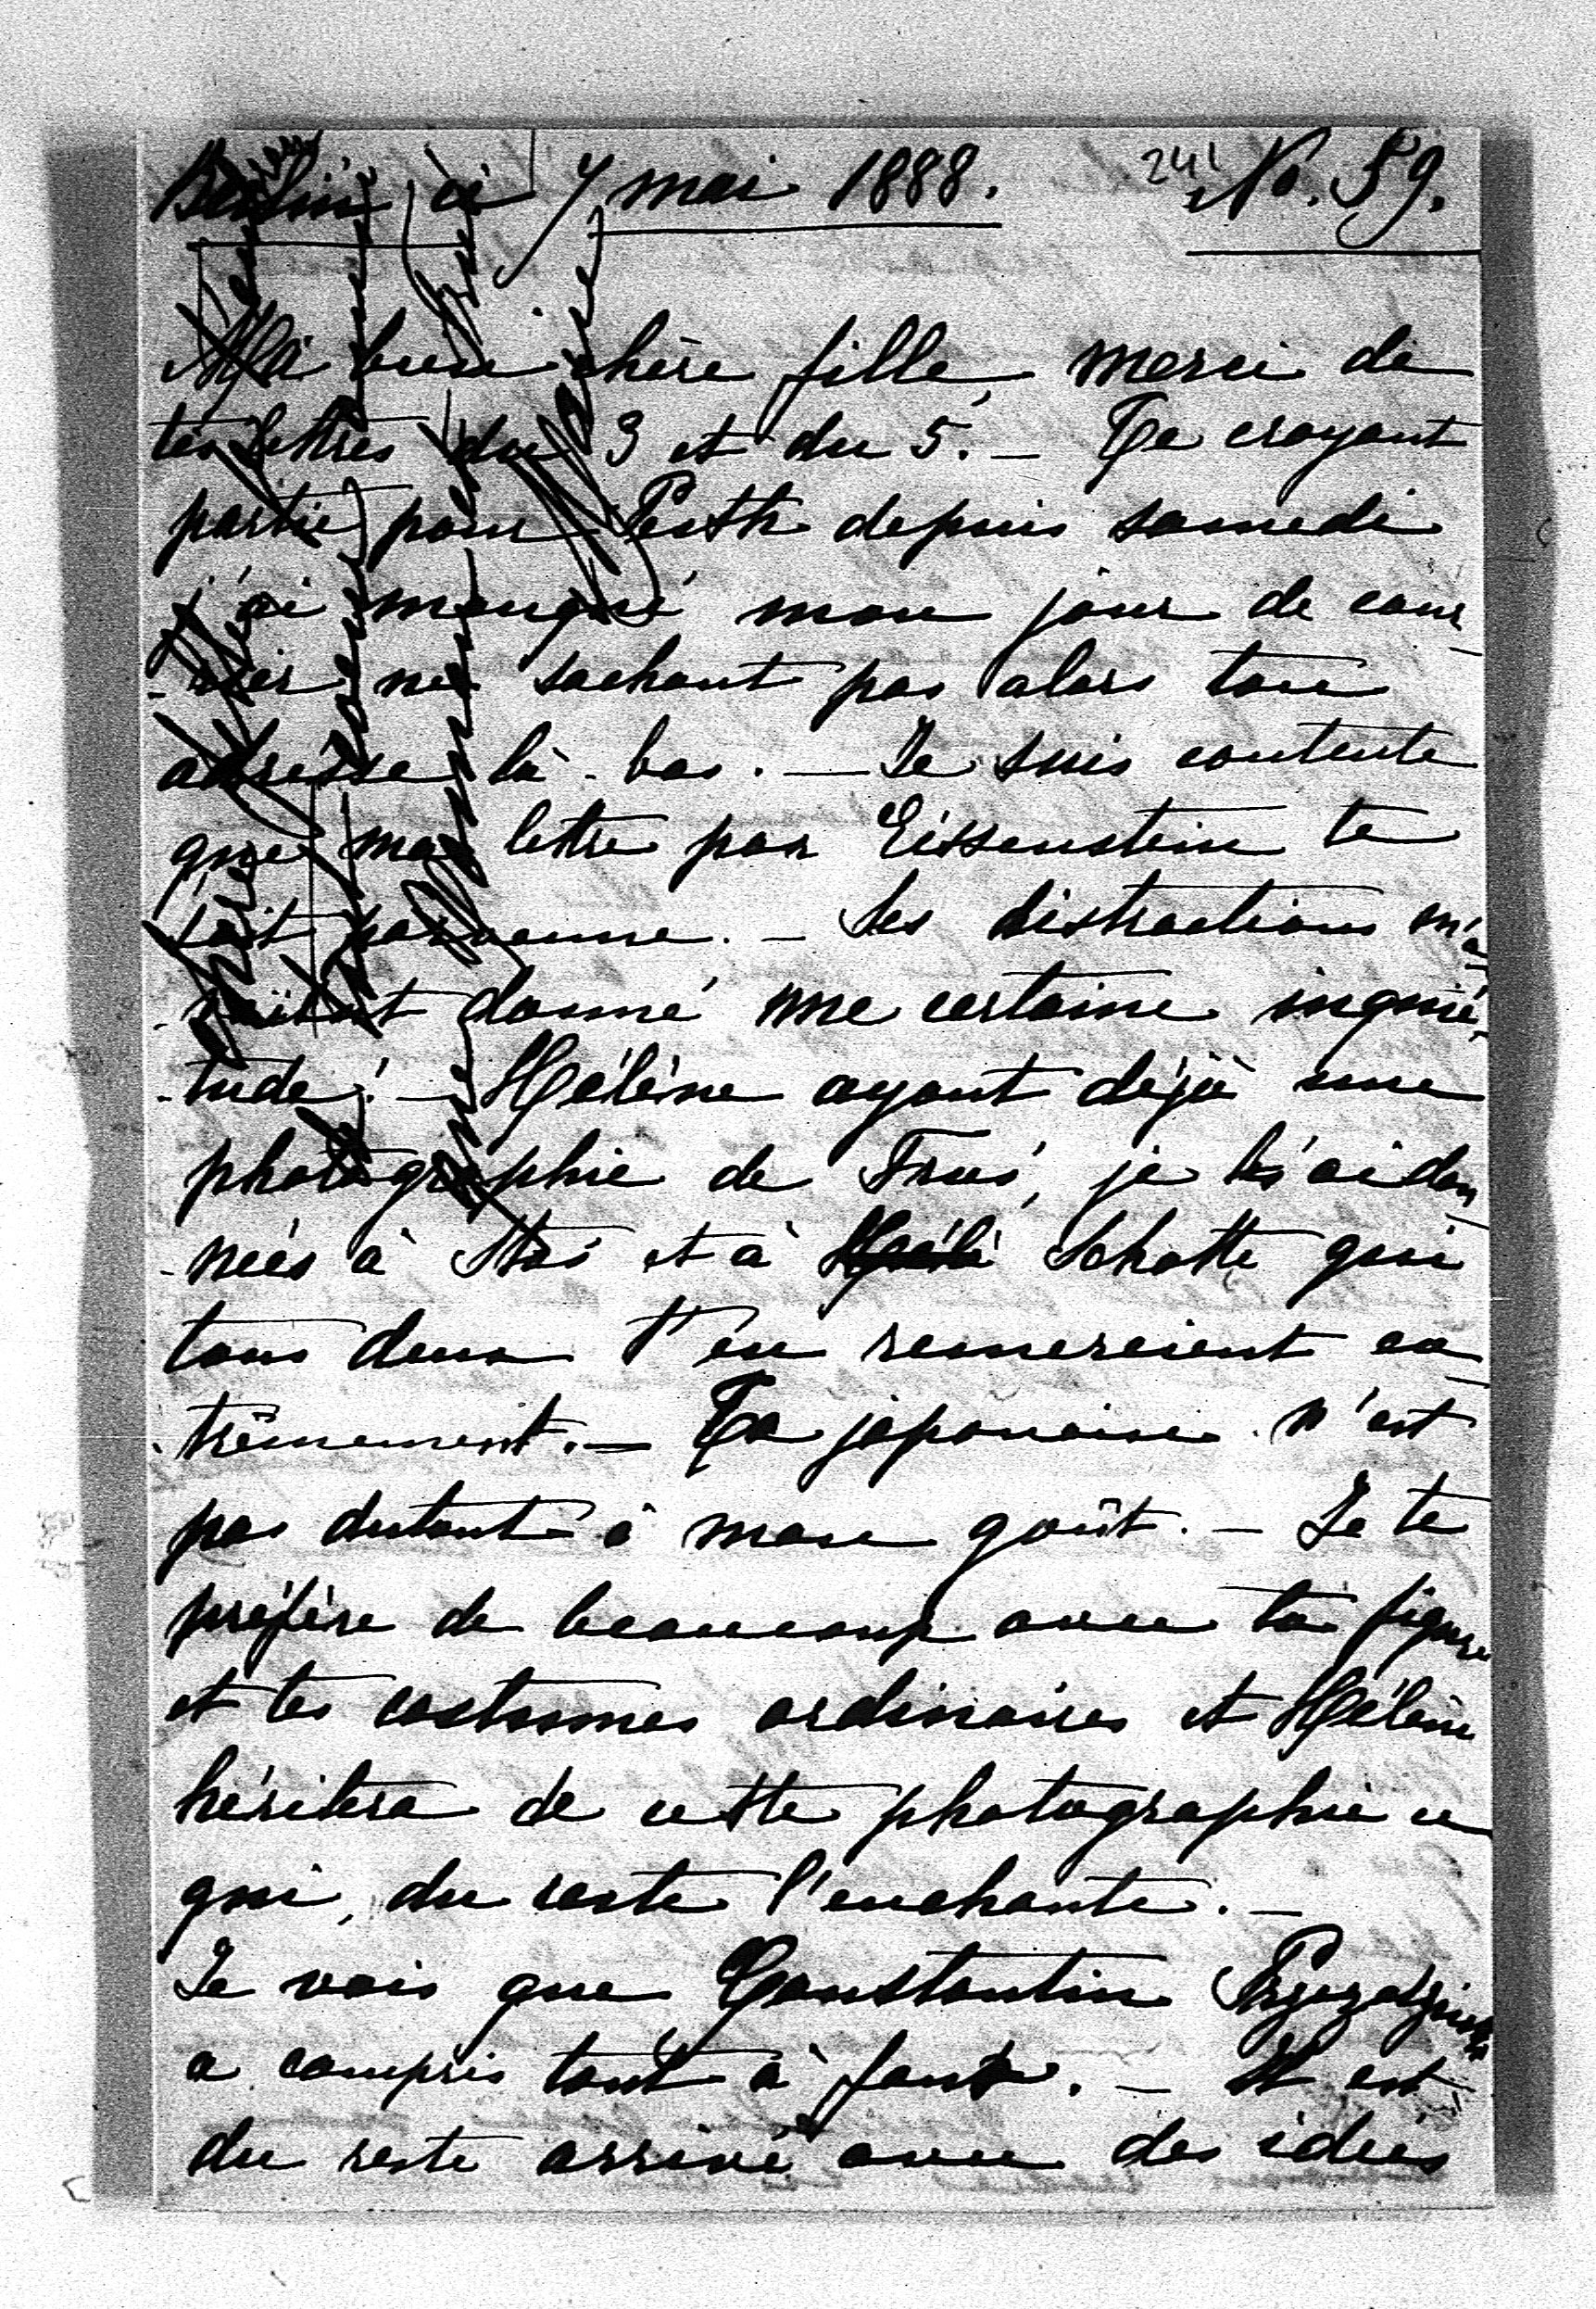 Berlin, ce 7 mai 1888. 241 No. 59.
Ma bien chère fille, merci de
tes lettres du 3 et du 5. — Te croyant
partie pour Pesth depuis samedi
j'ai manqué mon jour de cour
-rier ne sachant pas alors ton
adresse là-bas. — Je suis contente
que ma lettre par Eissenstein te
soit parvenue. — Ses distractions m'a
-vaient donné une certaine inquié
-tude! — Hélène ayant déjà une
photographie de, je les ai don
-nées à et à Schotte qui
tous deux t'en remercient ex
-trêmement. — Ta japonaise n'est
pas dutout à mon goût. — Je te
préfère de beaucoup avec ta figure
et tes costumes ordinaires et Hélène
héritera de cette photographie ce
qui, du reste l'enchante. —
Je vois que Constantin
a compris tout à faux. — Il est
du reste arrivé avec des idées